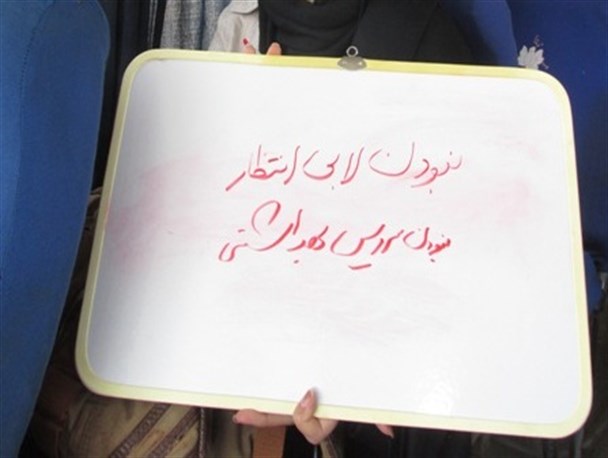 نبودن لابی انتظار
نبودن سرویس بهداشتی